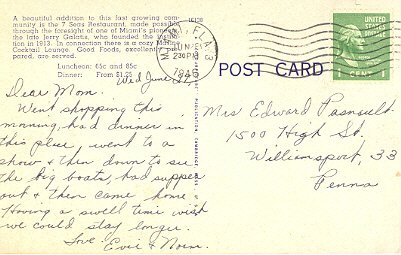 A beautiful addition to this last growing com-
munity is the 7 Seas Restaurant, made possible
through the foresight of one of Miami's pioneers,
the late Jerry Galatis, who founded the
in 1913. In connection there is a cozy
Cocktail Lounge. Good Foods, excellently
pared, are served.
Luncheon: 65c and 85c
Dinner: From $1.25
16120
MIAMI, FLA. 3
2 PM
1940
UNITED
STATES
POSTAGE
1 CENT 1
POST CARD
Wed June
Dear Mom.
Went shopping this
morning, had dinner in
this place, went to a
show & then down to see
the big boats, had supper
out & then came home.
Having a swell time wish
we could stay longer.
Love. Evie & Norm.
Mrs Edward Pasnault
1500 High St.
Williamsport, 33
Penna